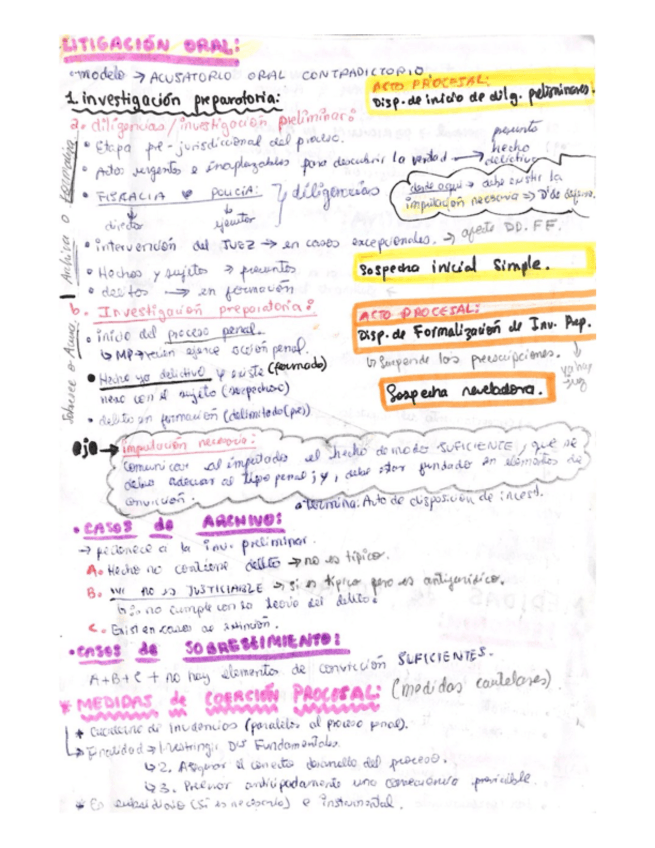 LITIGACIÓN ORAL:
modelo → ACUSATORIO ORAL CONTRADICTORIO
ACTO PROCESAL:
Disp. de inicio de dilg. preliminares.
1. investigación preparatoria:
a. diligencias/investigación preliminar:
• Etapa pre-jurisdiccional del proceso.
• Actos urgentes e inaplazables para descubrir la verdad → presunto hecho delictivo
• FISCALIA y POLICIA: diligencias
director ejecutor
desde aquí → debe existir la imputación necesaria → D' de defensa.
• intervención del JUEZ → en casos excepcionales. → afecte DD.FF.
• Hechos y sujetos → presuntos
• delitos → en formación
Sospecha inicial simple.
Archiva o Formaliza
b. Investigación preparatoria:
• inicio del proceso penal.
↳ MP recien ejerce acción penal.
ACTO PROCESAL:
Disp. de Formalización de Inv. Prep.
↳ Suspende las prescripciones.
ya hay juez
• Hecho ya delictivo y existe (formado)
nexo con el sujeto (sospechoso)
• delito en formación (delimitado
Sospecha reveladora.
Sobresee o Acusa
Ojo → imputación necesaria:
comunicar al imputado el hecho de modo SUFICIENTE, que se
debe adecuar al tipo penal; y, debe estar fundado en elementos de
convicción.
• Termina: Auto de disposición de invest.
• CASOS de ARCHIVO:
→ pertenece a la inv. preliminar.
A. Hecho no contiene delito → no es típico.
B. NO ES JUSTICIABLE → si es típico pero es antijurídico.
↳ no cumple con la teoría del delito.
C. Existen causas de extinción.
• CASOS de SOBRESEIMIENTO:
A+B+C + no hay elementos de convicción SUFICIENTES.
* MEDIDAS de COERCIÓN PROCESAL: (medidas cautelares)
* Cuaderno de Incidencias (paralelos al proceso penal).
↳ Finalidad → 1. restringir Dr's Fundamentales.
↳ 2. Asegurar el correcto desarrollo del proceso.
↳ 3. Prevenir anticipadamente una consecuencia previsible.
* Es subsidiario (si es necesario) e instrumental.